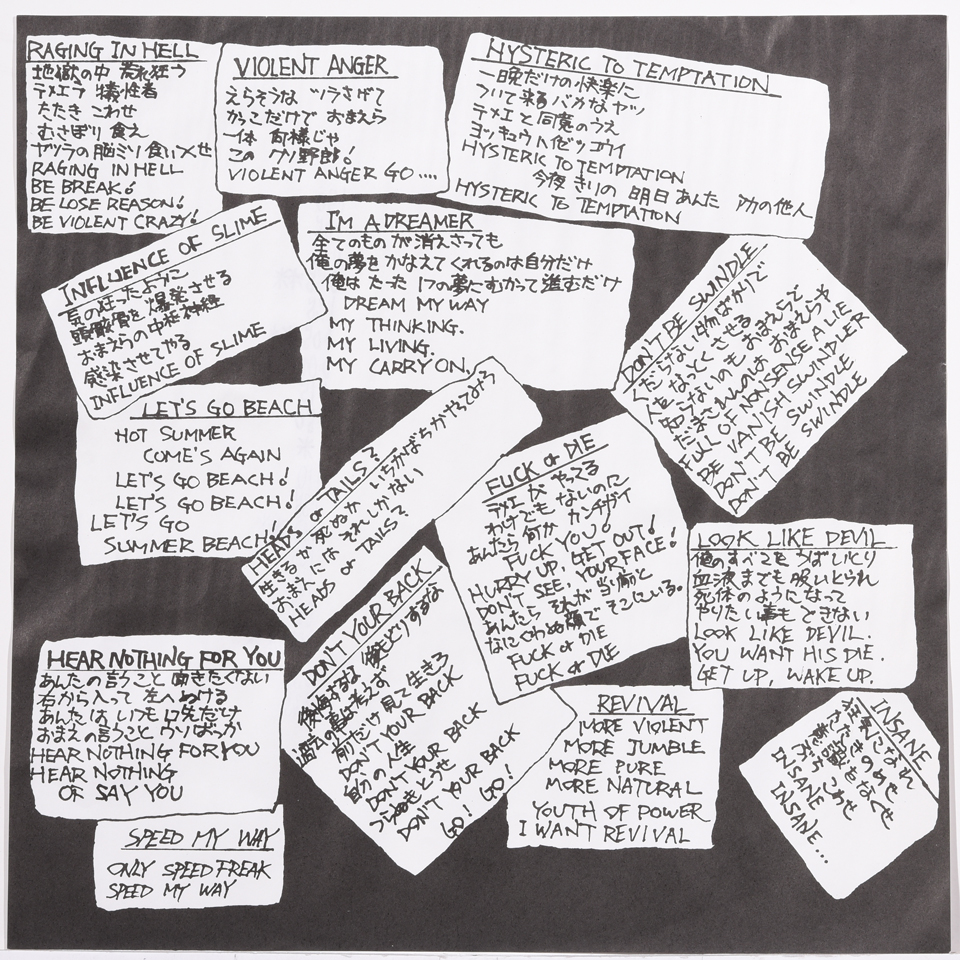 RAGING IN HELL
地獄の中 荒れ狂う
テメエラ 犠牲者
たたき こわせ
むさぼり 食え
ヤツラの脳ミソ食いつくせ
RAGING IN HELL
BE BREAK!
BE LOSE REASON!
BE VIOLENT CRAZY!
VIOLENT ANGER
えらそうな ツラさげて
かっこだけで おまえら
一体 何様じゃ
この クソ野郎!
VIOLENT ANGER GO....
HYSTERIC TO TEMPTATION
一晩だけの快楽に
ついて来るバカなヤツ
テメエと同魔のうえ
ヨッキュウ
HYSTERIC TO TEMPTATION
今夜きりの 明日 あんた アカの他人
HYSTERIC TO TEMPTATION
INFLUENCE OF SLIME
気の狂ったように
頭骸骨を 爆発させる
おまえらの中枢神経
感染させてやる
INFLUENCE OF SLIME
I'M A DREAMER
全てのものが消えさっても
俺の夢を かなえてくれるのは自分だけ
俺は たった1つの夢にむかって進むだけ
DREAM MY WAY
MY THINKING.
MY LIVING.
MY CARRY ON.
DON'T BE SWINDLE
くだらない物ばかりで
人をなっとくさせる
知らないのも おまえらで
だまされんのは おまえらや
FULL OF NONSENSE A LIE
BE VANISH SWINDLER
DON'T BE SWINDLE
DON'T BE SWINDLE
LET'S GO BEACH
HOT SUMMER
COME'S AGAIN
LET'S GO BEACH!
LET'S GO BEACH!
LET'S GO
SUMMER BEACH!
HEADS or TAILS?
生きるか死ぬか いちかばちかやってみろ
おまえには それしかない
HEADS or TAILS?
FUCK or DIE
テメエが やってる
わけでも ないのに
あんたら 何か カンチガイ
FUCK YOU!
HURRY UP, GET OUT!
DON'T SEE, YOUR FACE!
あんたら それが 当り前と
なにくわぬ顔で そこにいる。
FUCK or DIE
FUCK or DIE
LOOK LIKE DEVIL
俺のすべてを うばいとり
血液までも 吸いとられ
死体のようになって
やりたい事も できない
LOOK LIKE DEVIL.
YOU WANT HIS DIE.
GET UP, WAKE UP.
HEAR NOTHING FOR YOU
あんたの言うこと 聞きたくない
右から入って 左へぬける
あんたは いつも 口先だけ
おまえの言うこと ウソばっか
HEAR NOTHING FOR YOU
HEAR NOTHING
OF SAY YOU
DON'T YOUR BACK
後悔するな 後もどりするな
過去の事は考えず
前だけ見て生きろ
DON'T YOUR BACK
自分の人生
DON'T YOUR BACK
DON'T YOUR BACK
GO! GO!
REVIVAL
MORE VIOLENT
MORE JUMBLE
MORE PURE
MORE NATURAL
YOUTH OF POWER
I WANT REVIVAL
INSANE
狂気になれ
たたきのめせ
INSANE
INSANE...
SPEED MY WAY
ONLY SPEED FREAK
SPEED MY WAY